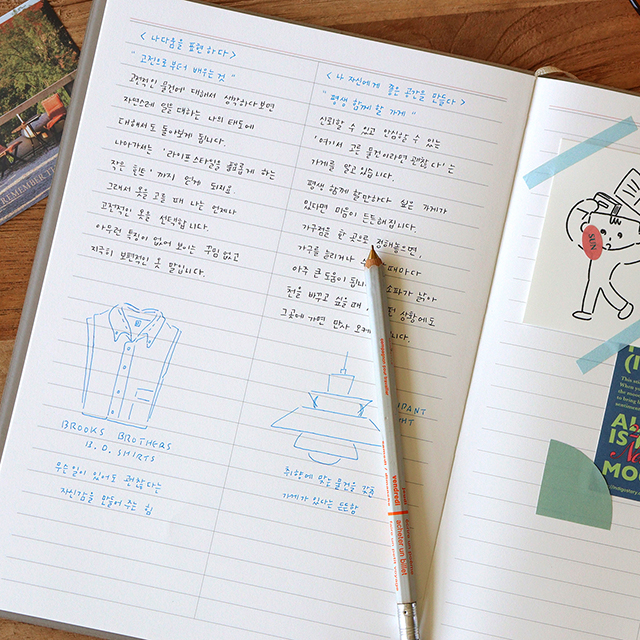 REMEMBER
< 나다움을 표현하다 >
"고전으로부터 배우는 것"
고전적인 물건에 대해서 생각하다보면
자연스레 일을 대하는 나의 태도에
대해서도 돌아보게 됩니다.
나아가서는 '라이프스타일을 풍요롭게 하는
작은 힌트' 까지 얻게 되지요.
그래서 옷을 고를 때 나는 언제나
고전적인 옷을 선택합니다.
아무런 특징이 없어 보이는 꾸밈 없고
지극히 보편적인 옷 말입니다.
BROOKS BROTHERS
B. D. SHIRTS
무슨일이 있어도 괜찮다는
자신감을 만들어 주는 힘
< 나 자신에게 좋은 공간을 만들다 >
"평생 함께 할 가게"
신뢰할 수 있고 안심할 수 있는
'여기서 고른 물건이라면 괜찮다'는
가게를 알고 있습니다.
평생 함께 할만하다 싶은 가게가
있다면 마음이 든든해집니다.
가구점을 한 곳으로 정해놓으면,
가구를 늘리거나 때마다
아주 큰 도움이 됩니다. 소파가 낡아
천을 바꾸고 싶을 때 상황에도
그곳에 가면 만사 오케
취향에 맞는 물건을 갖춘
가게가 있다는 든든함
vendredi
acheter un billet
SUN
This
When
the mus
to bring
momen
IS
MOO